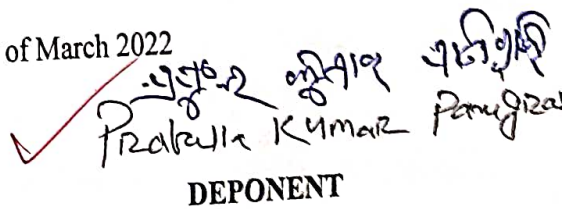 of March 2022
ପ୍ରଫୁଲ୍ଲ କୁମାର ପାଣିଗ୍ରାହି
Prafulla Kumar Panigrahi
DEPONENT